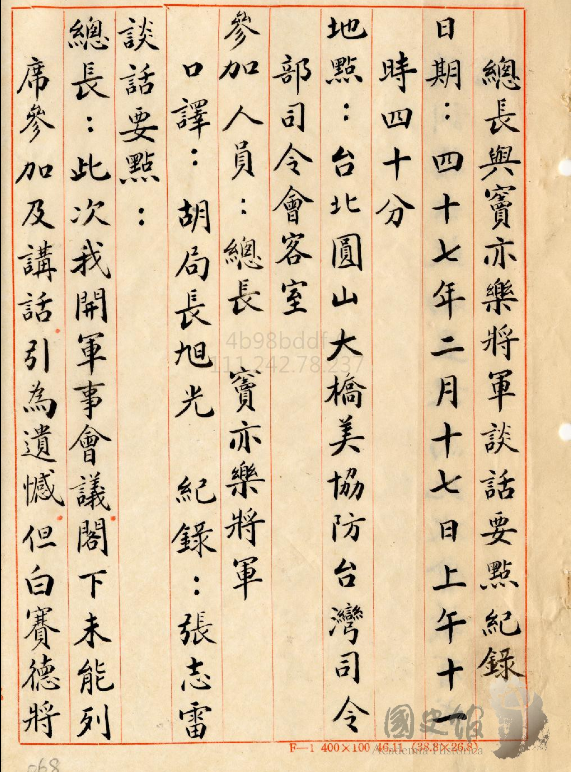 總長與竇亦樂將軍談話要點紀錄
日期：四十七年二月十七日上午十一
時四十分
地點：台北圓山大橋美協防台灣司令
部司令會客室
參加人員：總長　竇亦樂將軍
口譯：胡局長旭光　紀錄：張志雷
談話要點：
總長：此次我開軍事會議閣下未能列
席參加及講話引為遺憾但白賽德將
4b98bddf
111.242.78.237
國史館
Academia Historica
F—1 400×100 46.11 (38.8×26.8)
068